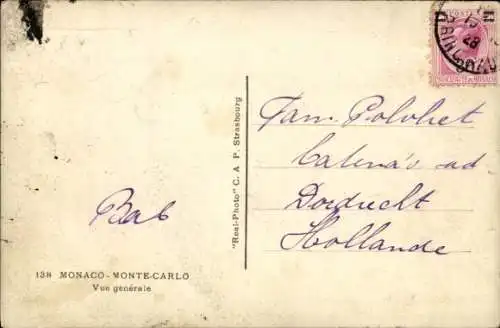 Fam. Polvliet
Catena's ad
Dordrecht
Hollande
Bab
"Real-Photo" C. A P. Strasbourg
138 MONACO - MONTE-CARLO
Vue générale